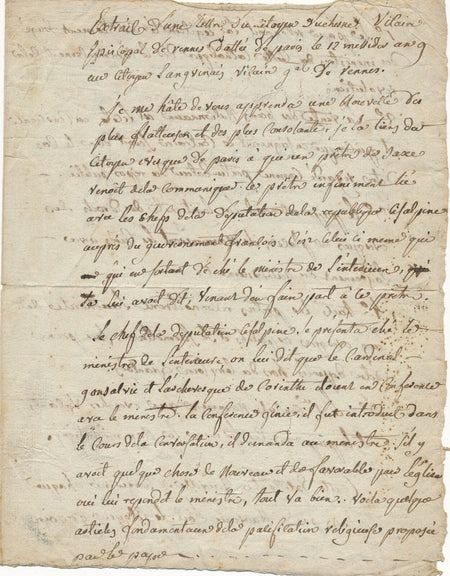 Extrait d'une lettre du citoyen duchesne Vicaire
Episcopal de rennes dattée de paris le 12 messidor an 9
au Citoyen Languinais vicaire g.al De Rennes.
je me hâte de vous apprendre une Nouvelle des
plus flatteuses et des plus Consolantes, je la tiens du
Citoyen evêque de paris à qui un prêtre de
venoit de la Communiquer. le prêtre infiniment lié
avec les Chefs de la deputation de la republique Cisalpine
aupres du gouvernement francois. C'est Celui ci meme qui
qui en sortant de ché le ministre de l'interieur,
lui avoit dit, venant d'en faire part à ce prêtre.
le Chef de la deputation Cisalpine, se presenta ché le
ministre de l'interieur on lui dit que le Cardinal
gonsalvie et l'archevesque de Corinthe étoient en Conference
avec le ministre. la Conference finie, il fut introduit dans
le Cours de la Conversation, il demanda au ministre s'il y
avoit quelque chose de Nouveau et de favorable par l'église
oui lui repondit le ministre, tout va bien. voila quelque
articles fondamentaux de la pasification religieuse proposée
par le pape